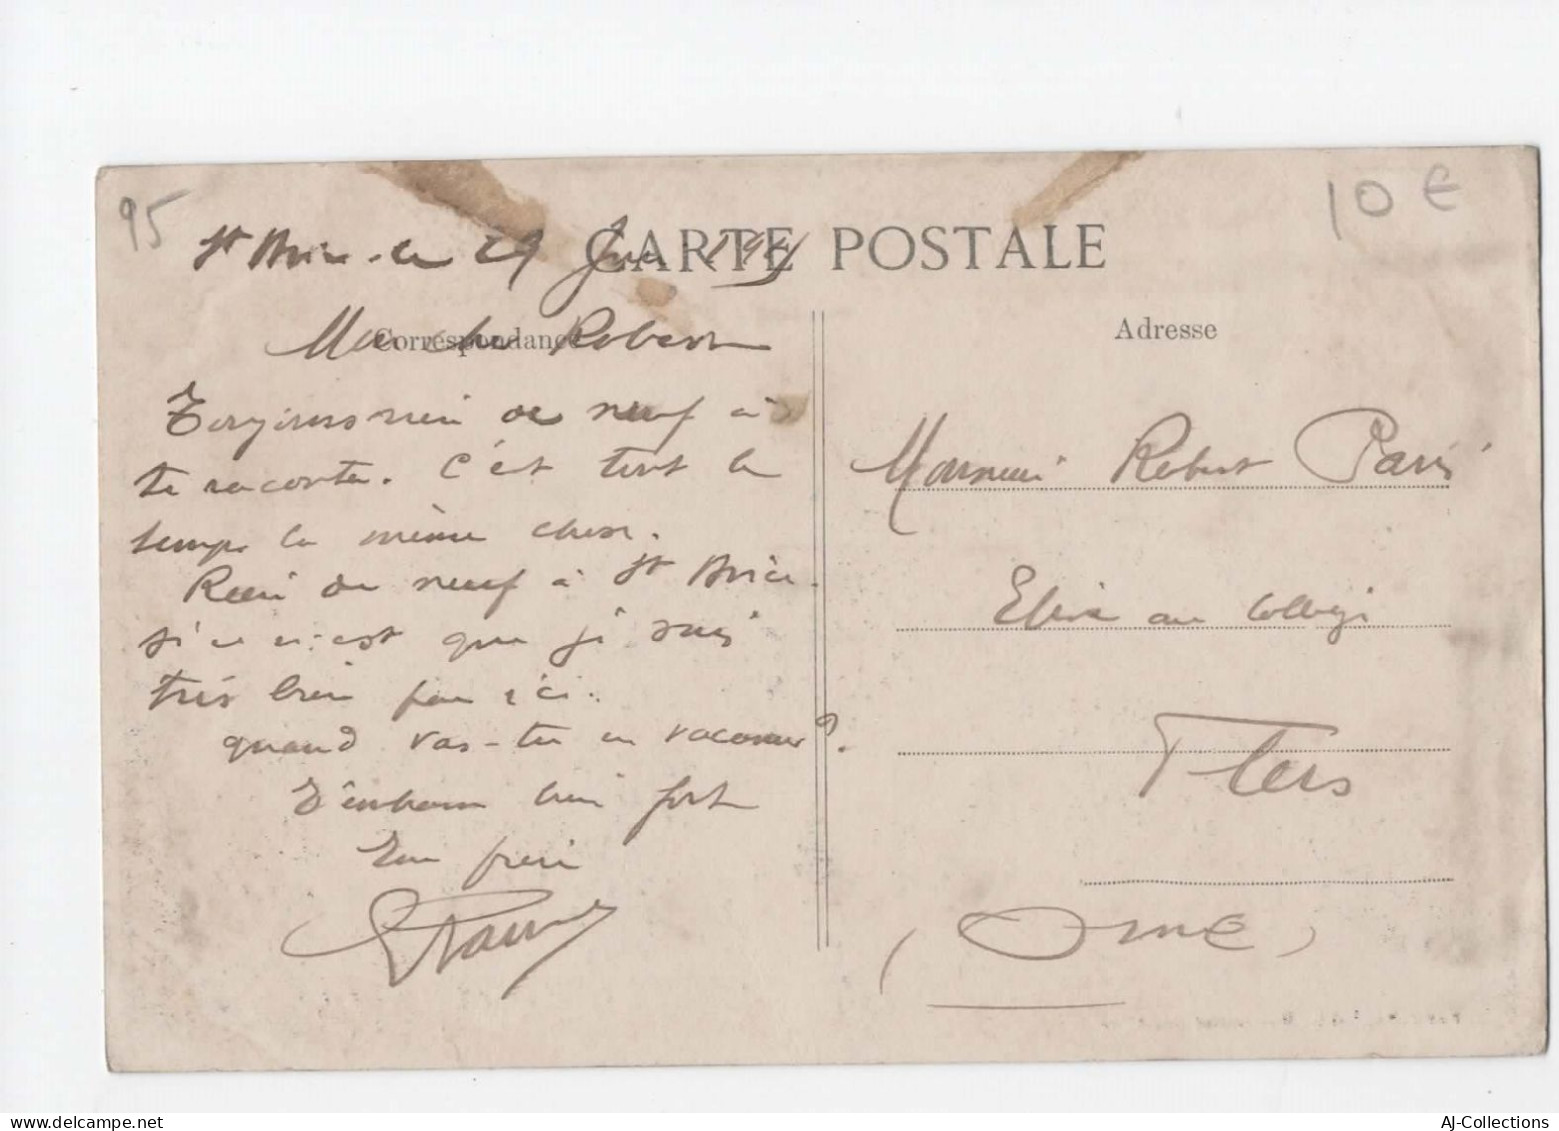 95
10 €
CARTE POSTALE
St Brice le 29 Juin
Correspondance
Mon cher Robert
Toujours rien de neuf à
te raconter. C'est tout le
temps la même chose.
Rien de neuf à St Brice.
si ce n'est que je suis
très bien par ici.
quand vas-tu en vacances ?
T'embrasse bien fort
Ton frère
Adresse
Monsieur Robert Paris
Elève au Collège
Flers
(Orne)
AJ-Collections